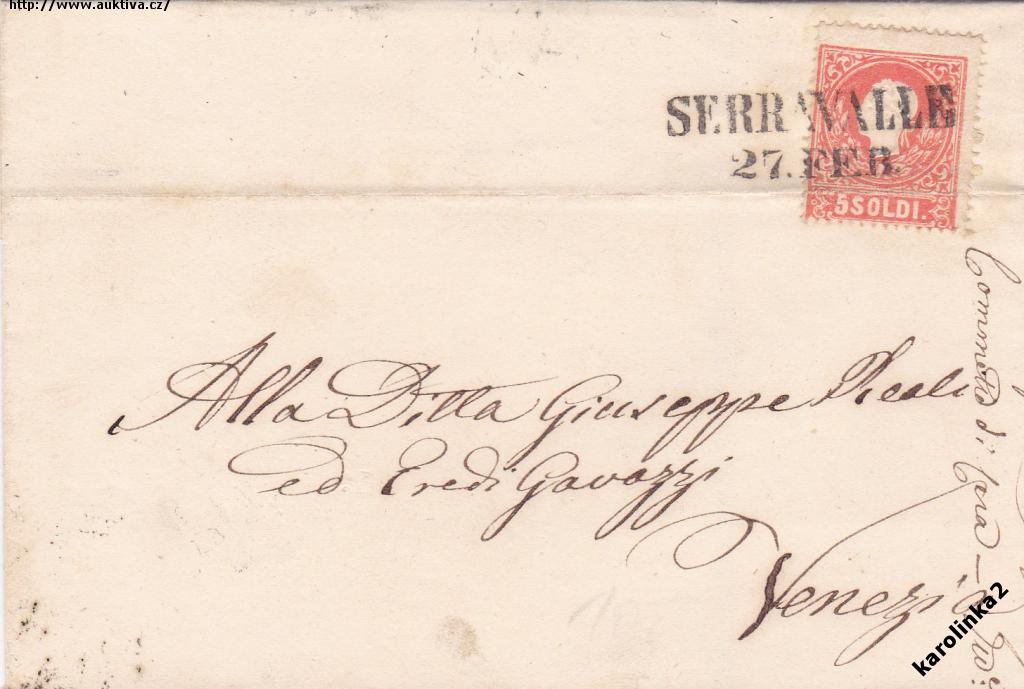 http://www.auktiva.cz/
SERRAVALLE
27. FEB.
5 SOLDI.
Alla Ditta Giuseppe
ed Eredi Gavazzi
Venezia
di
karolinka2